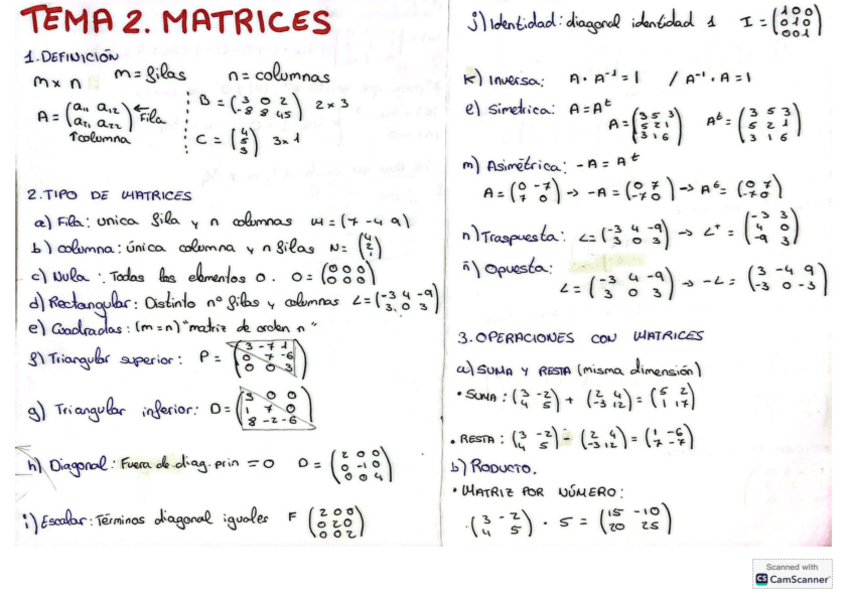 TEMA 2. MATRICES
1. DEFINICIÓN
m x n   m = filas   n = columnas
A = (a₁₁ a₁₂ / a₂₁ a₂₂) ← Fila
↑ columna
B = (3 0 2 / -8 8 45) 2 x 3
C = (4 / 5 / 3) 3 x 1
2. TIPO DE MATRICES
a) Fila: unica fila y n columnas M = (7 -4 9)
b) columna: única columna y n filas N = (4 / 2 / 1)
c) Nula: Todos los elementos 0. O = (0 0 0 / 0 0 0)
d) Rectangular: Distinto nº filas y columnas L = (-3 4 -9 / 3 0 3)
e) Cuadradas: (m = n) "matriz de orden n"
f) Triangular superior: P = (3 -7 1 / 0 7 -6 / 0 0 3)
g) Triangular inferior: D = (3 0 0 / 1 7 0 / 8 -2 -6)
h) Diagonal: Fuera de diag. prin = 0 D = (2 0 0 / 0 -1 0 / 0 0 4)
i) Escalar: Términos diagonal iguales F (2 0 0 / 0 2 0 / 0 0 2)
j) Identidad: diagonal identidad 1 I = (1 0 0 / 0 1 0 / 0 0 1)
k) Inversa: A · A⁻¹ = 1 / A⁻¹ · A = 1
l) Simetrica: A = Aᵗ
A = (3 5 3 / 5 2 1 / 3 1 6) Aᵗ = (3 5 3 / 5 2 1 / 3 1 6)
m) Asimétrica: -A = Aᵗ
A = (0 -7 / 7 0) → -A = (0 7 / -7 0) → Aᵗ = (0 7 / -7 0)
n) Traspuesta: L = (-3 4 -9 / 3 0 3) → Lᵗ = (-3 3 / 4 0 / -9 3)
ñ) Opuesta:
L = (-3 4 -9 / 3 0 3) → -L = (3 -4 9 / -3 0 -3)
3. OPERACIONES CON MATRICES
a) SUMA Y RESTA (misma dimensión)
· SUMA: (3 -2 / 4 5) + (2 4 / -3 12) = (5 2 / 1 17)
· RESTA: (3 -2 / 4 5) - (2 4 / -3 12) = (1 -6 / 7 -7)
b) RODUCTO.
· MATRIZ POR NÚMERO:
(3 -2 / 4 5) · 5 = (15 -10 / 20 25)
Scanned with
CS CamScanner